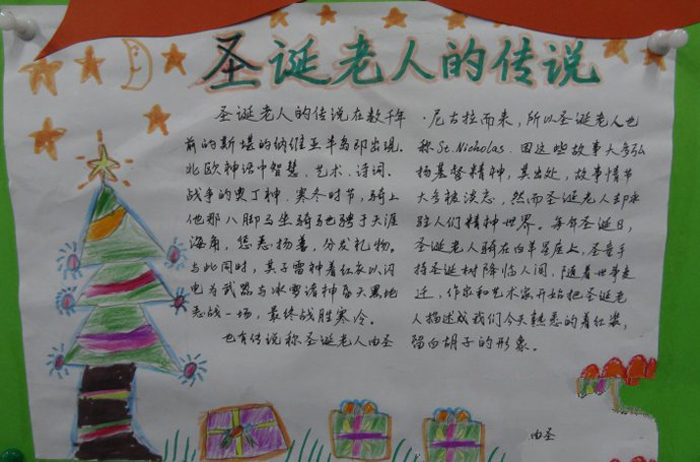 圣诞老人的传说
圣诞老人的传说在数千年
前的斯堪的纳维亚半岛即出现。
北欧神话中智慧、艺术、诗词、
战争的奥丁神，寒冬时节，骑上
他那八脚马坐骑驰骋于天涯
海角，惩恶扬善，分发礼物。
与此同时，其子雷神着红衣以闪
电为武器与冰雪诸神昏天黑地
恶战一场，最终战胜寒冷。
也有传说称圣诞老人由圣
·尼古拉而来，所以圣诞老人也
称St.Nicholas.因这些故事大多弘
扬基督精神，其出处，故事情节
大多被淡忘，然而圣诞老人却永
驻人们精神世界。每年圣诞日，
圣诞老人骑在白羊星座上，圣童手
持圣诞树降临人间，随着世事变
迁，作家和艺术家开始把圣诞老
人描述成我们今天熟悉的着红装，
留白胡子的形象。
由圣